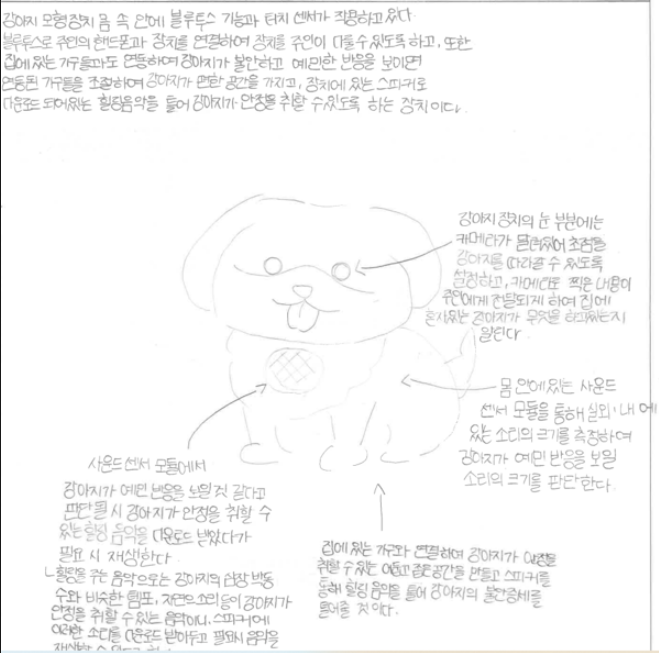 강아지 모형장치 몸 속 안에 블루투스 기능과 터치 센서가 작동하고 있다.
블루투스로 주인의 핸드폰과 장치를 연결하여 장치를 주인이 다룰 수 있도록 하고, 또한
집에 있는 가구들과도 연동하여 강아지가 불안하고 예민한 반응을 보이면
연동된 가구들을 조절하여 강아지가 편한 공간을 가지고, 장치에 있는 스피커로
다운로드 되어있는 힐링음악을 틀어 강아지가 안정을 취할 수 있도록 하는 장치이다.
강아지 장치의 눈 부분에는
카메라가 달려있어 초점을
강아지를 따라갈 수 있도록
설정하고, 카메라로 찍은 내용이
주인에게 전달되게 하여 집에
혼자있는 강아지가 무엇을 하고있는지
알린다.
몸 안에 있는 사운드
센서 모듈을 통해 실외·내에
있는 소리의 크기를 측정하여
강아지가 예민 반응을 보일
소리의 크기를 판단한다.
사운드 센서 모듈에서
강아지가 예민 반응을 보일 것 같다고
판단 될 시 강아지가 안정을 취할 수
있는 힐링 음악을 다운로드 받았다가
필요 시 재생한다
ㄴ힐링을 주는 음악으로는 강아지의 심장 박동
수와 비슷한 템포, 자연의소리 등이 강아지가
안정을 취할 수 있는 음악이니, 스피커에
이러한 소리를 다운로드 받아두고 필요시 음악을
집에 있는 가구와 연결하여 강아지가 안정을
취할 수 있는 어둡고 좁은 공간을 만들고 스피커를
통해 힐링 음악을 틀어 강아지의 불안증세를
줄여줄 것이다.